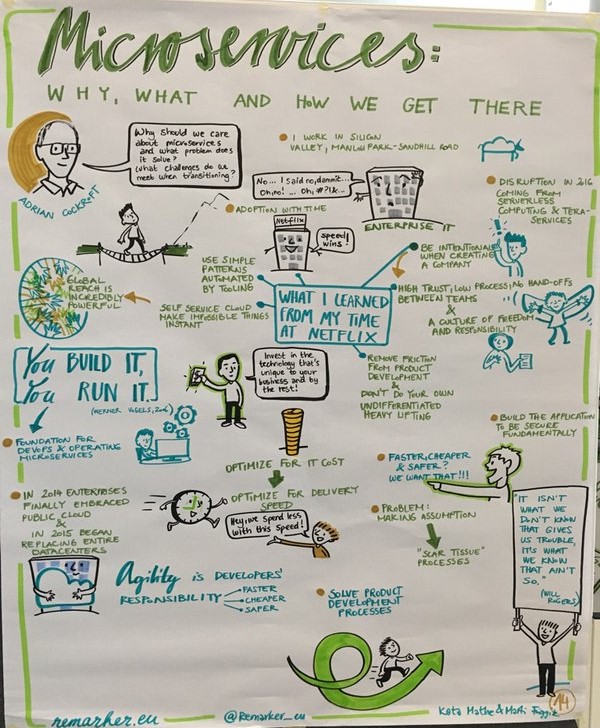 Microservices:
WHY, WHAT AND HOW WE GET THERE
Why should we care
about microservices
and what problem does
it solve?
What challenges do we
meet when transitioning?
ADRIAN COCKROFT
I WORK IN SILICON
VALLEY, MANLOW PARK-SANDHILL ROAD
No... I said no, dammit...
Oh no! ... Oh #?!&...
ENTERPRISE IT
DISRUPTION IN 2016
COMING FROM
SERVERLESS
COMPUTING & TERA-
SERVICES
ADOPTION WITH TIME
Netflix
Speed
wins!
BE INTENTIONAL
WHEN CREATING
A COMPANY
USE SIMPLE
PATTERNS
AUTOMATED
BY TOOLING
GLOBAL
REACH IS
INCREDIBLY
POWERFUL
SELF SERVICE CLOUD
MAKE IMPOSSIBLE THINGS
INSTANT
WHAT I LEARNED
FROM MY TIME
AT NETFLIX
HIGH TRUST, LOW PROCESS, NO HAND-OFFS
BETWEEN TEAMS
&
A CULTURE OF FREEDOM
AND RESPONSIBILITY
You BUILD IT,
You RUN IT.
(WERNER VOGELS, 2006)
Invest in the
technology that's
unique to your
business and by
the rest!
REMOVE FRICTION
FROM PRODUCT
DEVELOPMENT
&
DON'T DO YOUR OWN
UNDIFFERENTIATED
HEAVY LIFTING
FOUNDATION FOR
DEVOPS & OPERATING
MICROSERVICES
BUILD THE APPLICATION
TO BE SECURE
FUNDAMENTALLY
OPTIMIZE FOR IT COST
OPTIMIZE FOR DELIVERY
SPEED
Hey, we spend less
with this speed!
FASTER, CHEAPER
& SAFER?
WE WANT THAT!!!
IN 2014 ENTERPRISES
FINALLY EMBRACED
PUBLIC CLOUD
&
IN 2015 BEGAN
REPLACING ENTIRE
DATACENTERS
PROBLEM:
MAKING ASSUMPTION
"SCAR TISSUE"
PROCESSES
"IT ISN'T
WHAT WE
DON'T KNOW
THAT GIVES
US TROUBLE,
IT'S WHAT
WE KNOW
THAT AIN'T
SO."
(WILL
ROGERS)
Agility IS DEVELOPERS'
RESPONSIBILITY
FASTER
CHEAPER
SAFER
SOLVE PRODUCT
DEVELOPMENT
PROCESSES
14
remarker.eu
@Remarker_eu
Kata Mathe & Marti